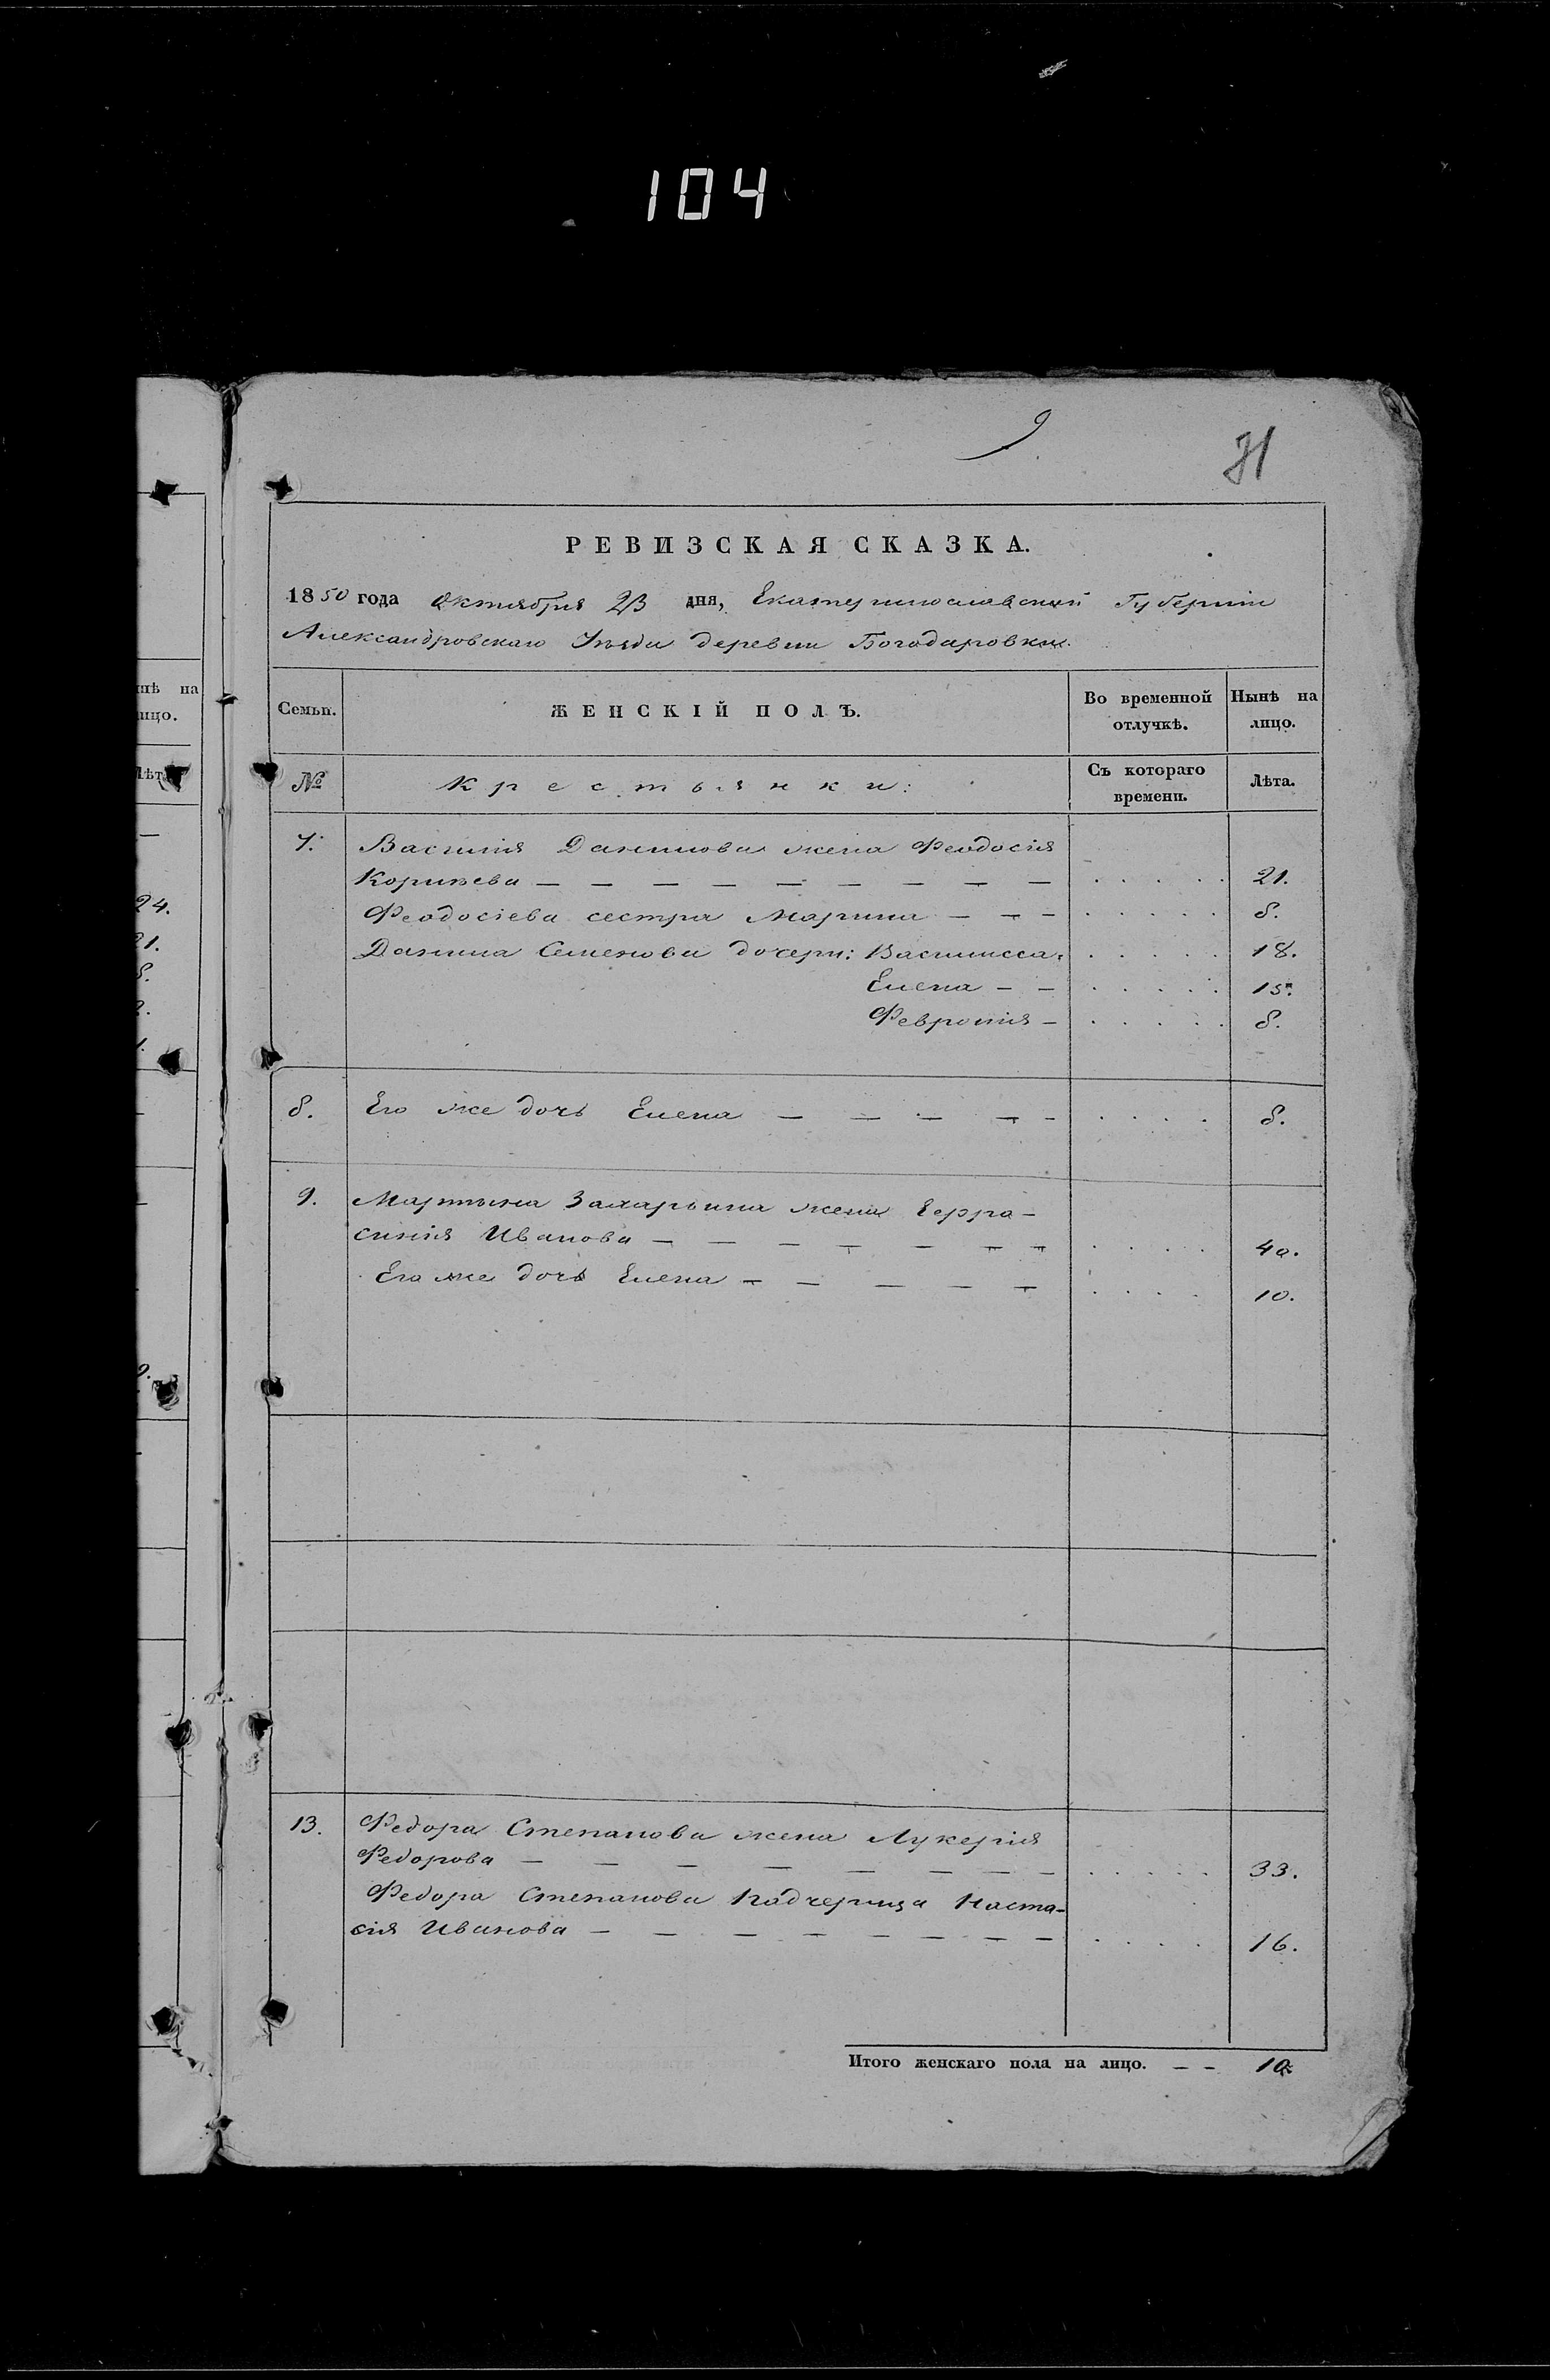 104
9
31
РЕВИЗСКАЯ СКАЗКА.
1850 года Октября 23 дня, Екатеринославской Губерніи
Александровскаго Уезда деревни Богодаровки.
Семьи. ЖЕНСКІЙ ПОЛЪ. Во временной отлучкѣ. Нынѣ на лицо.
№ Крестьянки: Съ котораго времени. Лѣта.
7. Василія Данилова жена Феодосія
Корнѣева — — — — — — — — 21.
Феодосіева сестра Марина — — — 8.
Данила Семенова дочери: Василисса 18.
Елена — — 15.
Февронія — 8.
8. Его же дочь Елена — — — — — 8.
9. Мартына Захарьина жена Евфра-
синія Иванова — — — — — — — 40.
Его же дочь Елена — — — — — 10.
13. Федора Степанова жена Лукерія
Федорова — — — — — — — — 33.
Федора Степанова падчерица Наста-
сія Иванова — — — — — — — — 16.
Итого женскаго пола на лицо. — — 10.
нѣ на
ицо.
Лѣт
24.
21.
8.